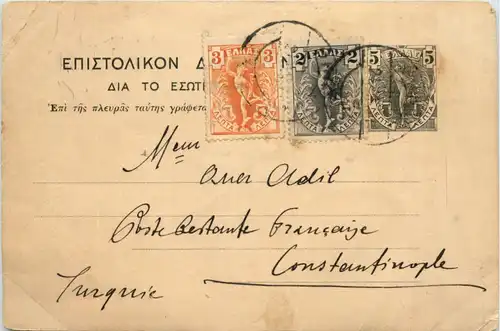 ΕΠΙΣΤΟΛΙΚΟΝ Δ
ΔΙΑ ΤΟ ΕΣΩΤ
Ἐπὶ τῆς πλευρᾶς ταύτης γράφετα
3 ΕΛΛΑΣ 3
ΛΕΠΤΑ ΛΕΠΤΑ
2 ΕΛΛΑΣ 2
ΛΕΠΤΑ ΛΕΠΤΑ
5 5
ΛΕΠΤΑ ΛΕΠΤΑ
Adil
Poste Restante Française
Constantinople
Turquie